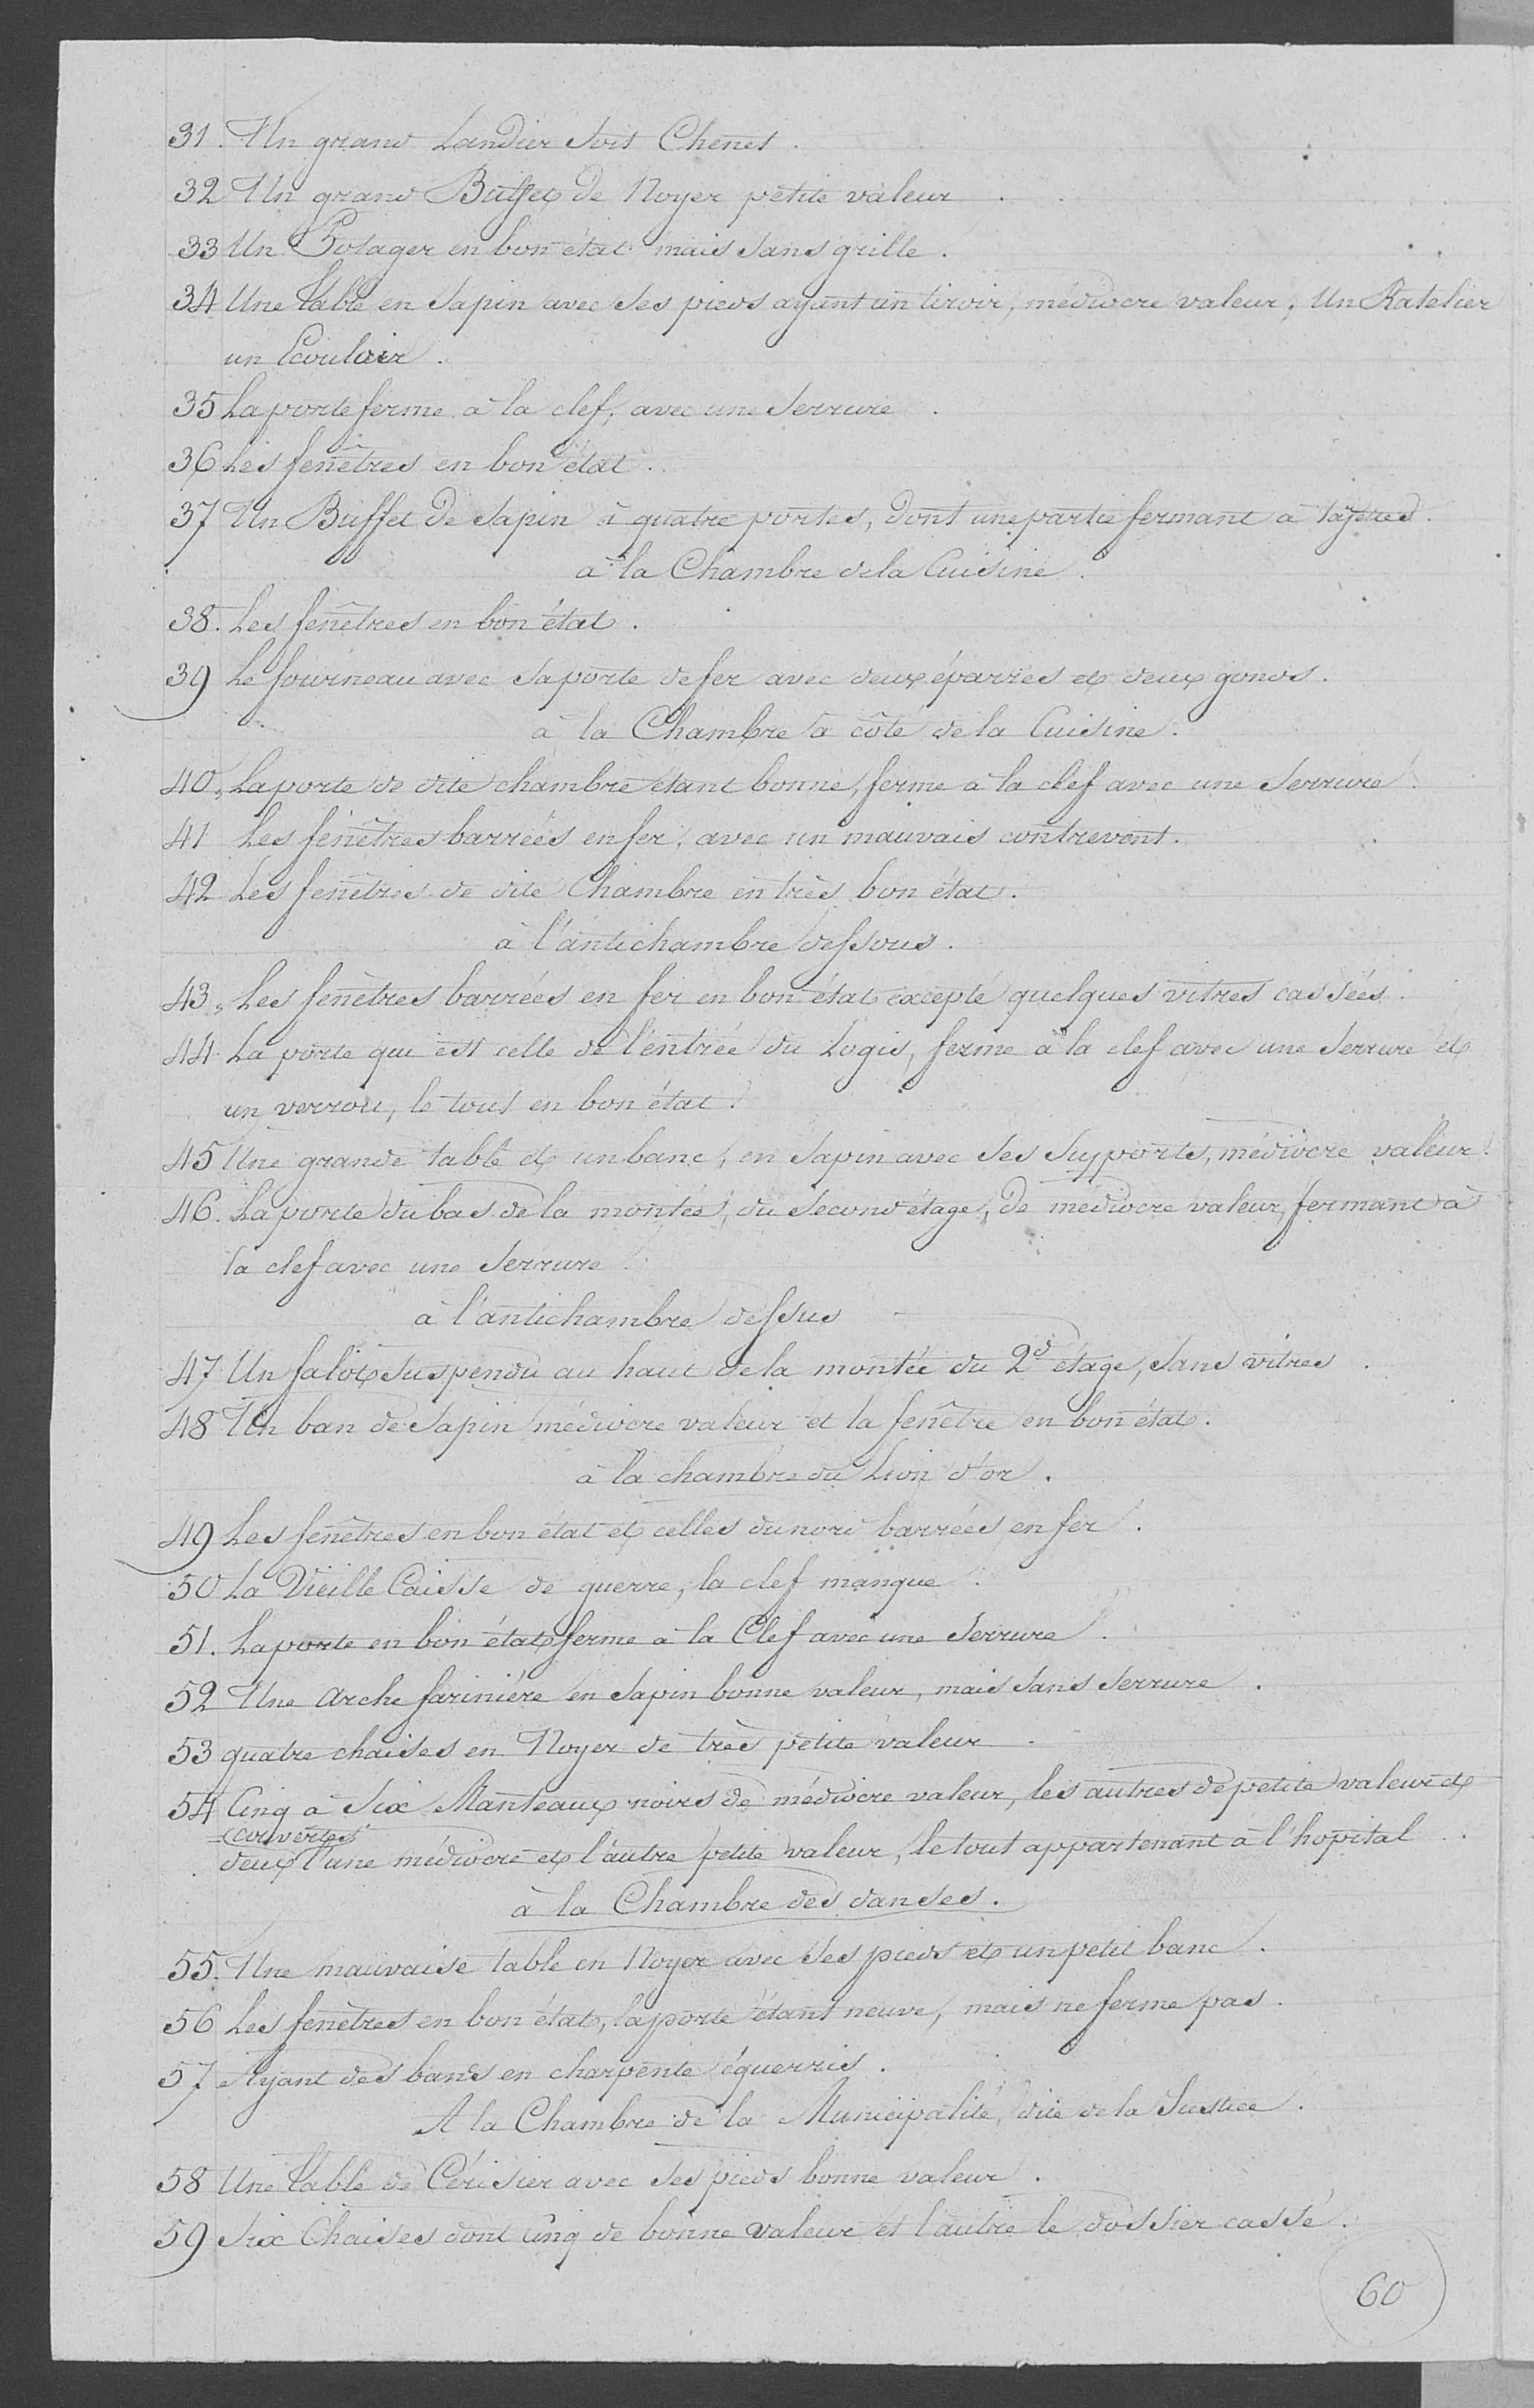 31. Un grand Landier soit Chenet.
32 Un grand Buffet de Noyer petite valeur.
33 Un Potager en bon état mais sans grille.
34 Une table en Sapin avec ses pieds ayant un tiroir, médiocre valeur, Un Ratelier
un Ecouloir.
35 La porte ferme à la clef, avec une Serrure.
36 Les fenêtres en bon état.
37 Un Buffet de Sapin à quatre portes, dont une partie fermant à
à la Chambre de la Cuisine.
38. Les fenêtres en bon état.
39 Le fourneau avec sa porte de fer avec deux éparres et deux gonds.
à la Chambre à côté de la Cuisine.
40. La porte de dite chambre étant bonne, ferme à la clef avec une Serrure.
41 Les fenêtres barrées en fer, avec un mauvais contrevent.
42 Les fenêtres de dite Chambre en très bon état.
à l'antichambre dessous.
43. Les fenêtres barrées en fer en bon état excepté quelques vitres cassées.
44 La porte qui est celle de l'entrée du Logis, ferme à la clef avec une Serrure et
un verrou, le tout en bon état.
45 Une grande table et un banc, en Sapin avec ses Supports, médiocre valeur.
46. La porte du bas de la montée, du Second étage, de médiocre valeur, fermant à
la clef avec une Serrure.
à l'antichambre dessus
47 Un falot Suspendu au haut de la montée du 2d étage, Sans vitres.
48 Un ban de Sapin médiocre valeur et la fenêtre en bon état.
à la chambre du Lion d'or.
49 Les fenêtres en bon état et celles du nord barrées en fer.
50 La Vieille Caisse de guerre, la clef manque.
51. La porte en bon état ferme à la Clef avec une Serrure.
52 Une Arche farinière en Sapin bonne valeur, mais Sans Serrure.
53 quatre chaises en Noyer de très petite valeur.
54 Cinq à Six Manteaux noirs de médiocre valeur, les autres de petite valeur et
couvertes
deux l'une médiocre et l'autre petite valeur, le tout appartenant à l'hopital.
à la Chambre des danses.
55. Une mauvaise table en Noyer avec Ses pieds et un petit banc.
56 Les fenêtres en bon état, la porte étant neuve, mais ne ferme pas.
57 Ayant des bancs en charpente équerris.
A la Chambre de la Municipalité, dite de la Justice.
58 Une table de Cérisier avec Ses pieds bonne valeur.
59 Six Chaises dont Cinq de bonne valeur et l'autre le dossier cassé.
60